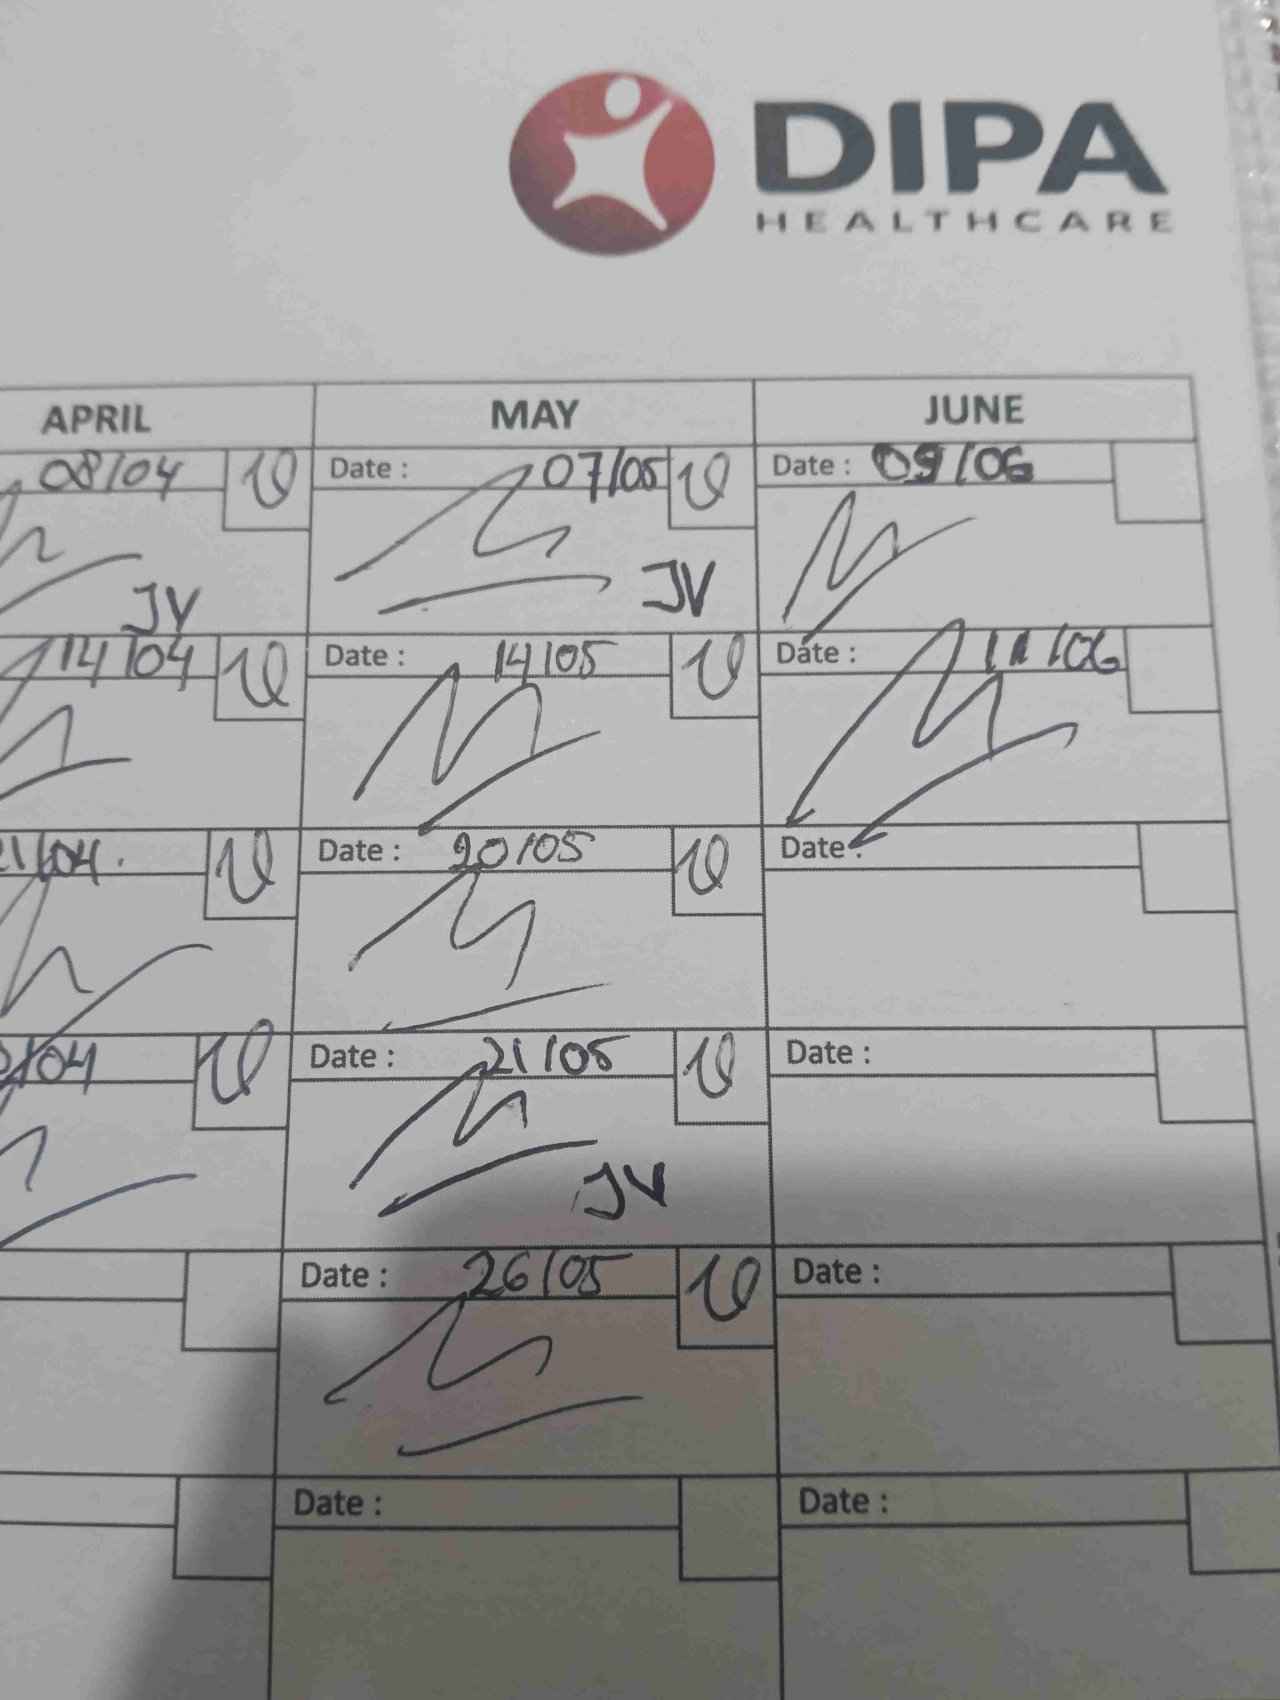 DIPA
HEALTHCARE
APRIL MAY JUNE
08/04 Date : 07/05 Date : 09/06
JV JV
14/04 Date : 14/05 Date : 11/06
21/04. Date : 20/05 Date :
/04 Date : 21/05 Date :
JV
Date : 26/05 Date :
Date : Date :